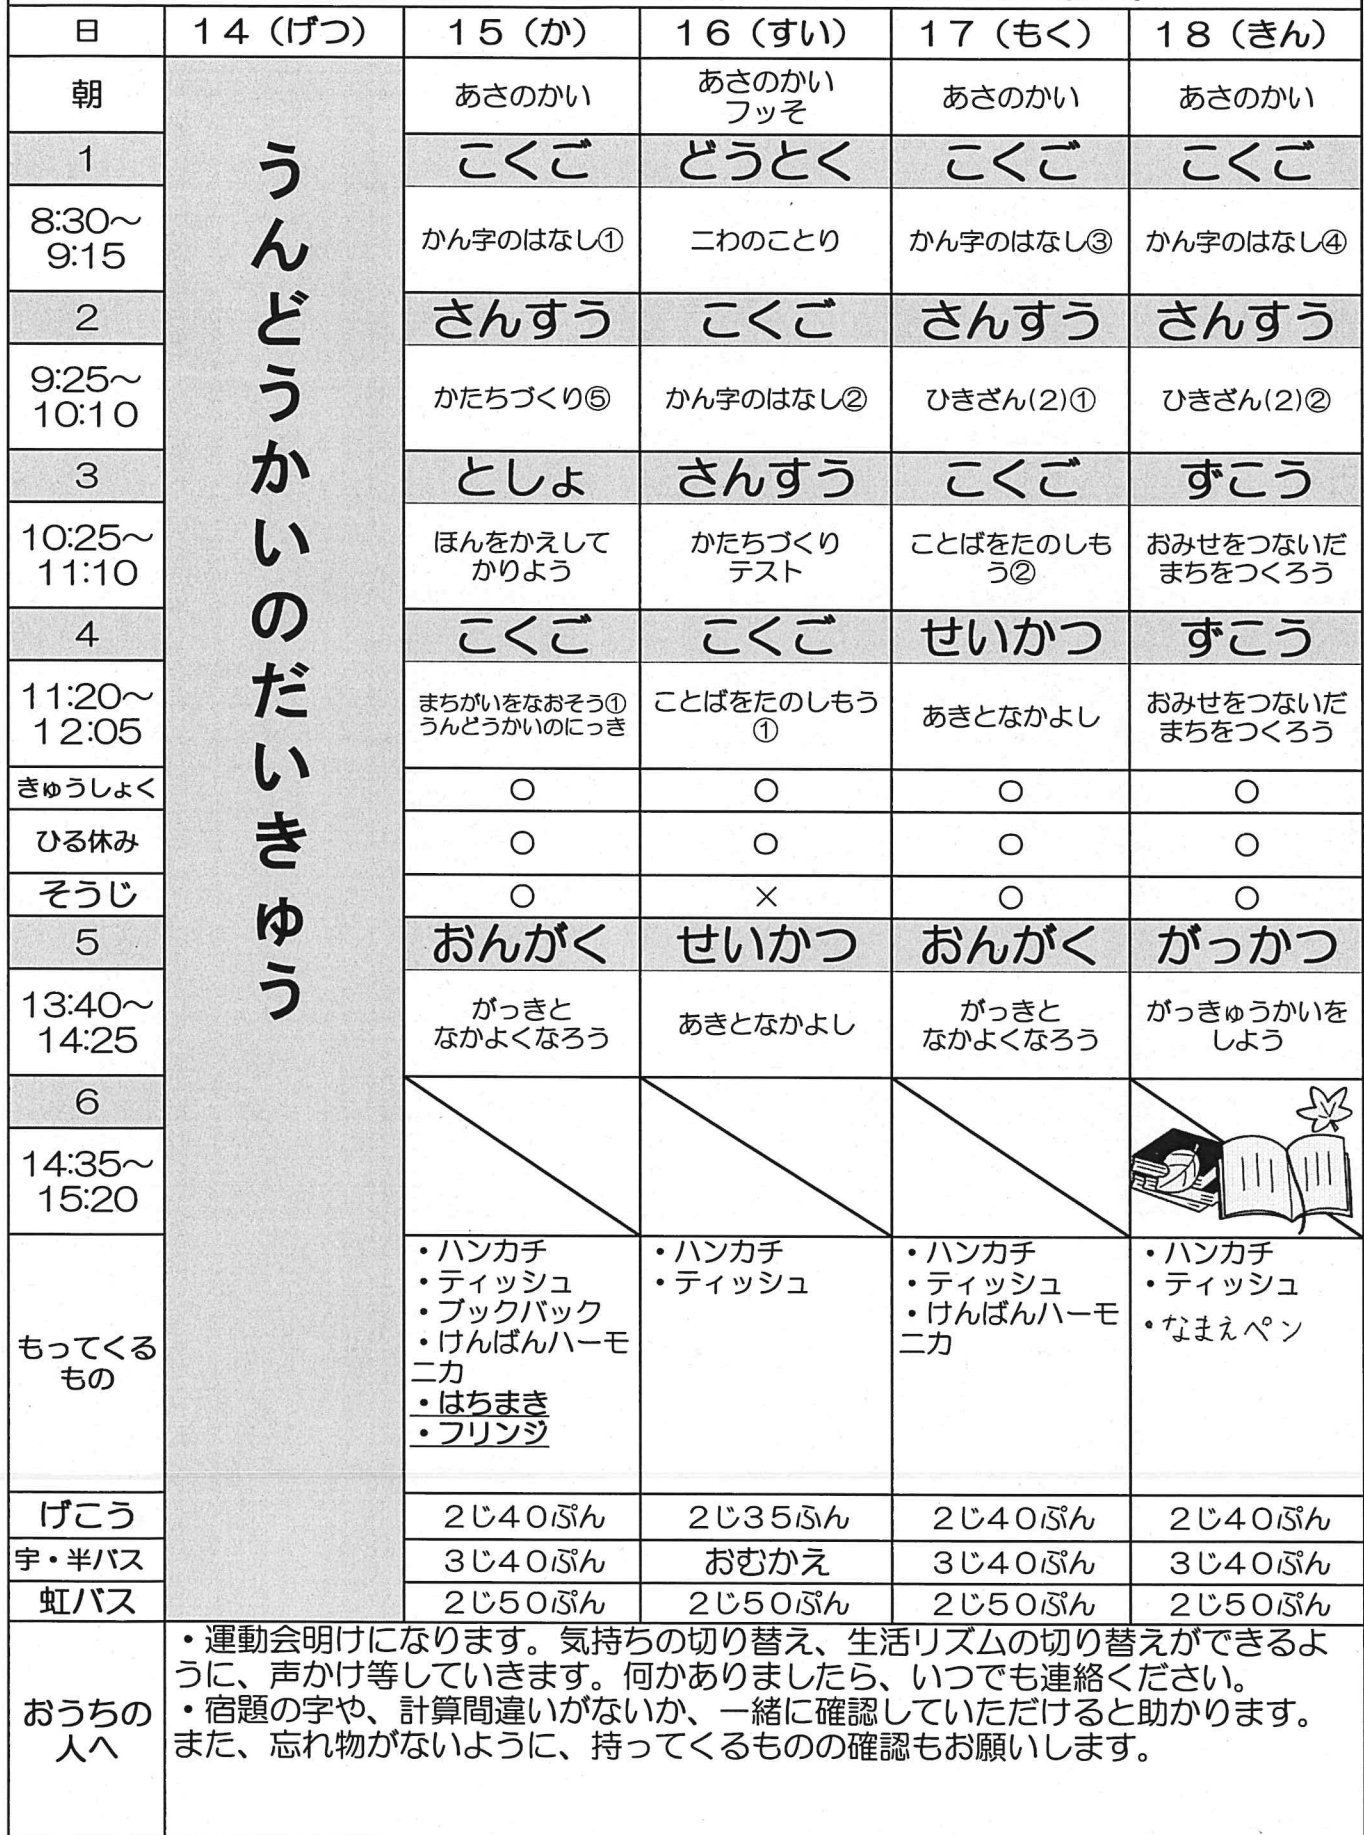 日 14（げつ） 15（か） 16（すい） 17（もく） 18（きん）
うんどうかいのだいきゅう
朝 あさのかい あさのかい あさのかい あさのかい
フッそ
1 こくご どうとく こくご こくご
8:30～
9:15
かん字のはなし① ニわのことり かん字のはなし③ かん字のはなし④
2 さんすう こくご さんすう さんすう
9:25～
10:10
かたちづくり⑤ かん字のはなし② ひきざん(2)① ひきざん(2)②
3 としょ さんすう こくご ずこう
10:25～ ほんをかえして かたちづくり ことばをたのしも おみせをつないだ
11:10 かりよう テスト う② まちをつくろう
4 こくご こくご せいかつ ずこう
11:20～ まちがいをなおそう① ことばをたのしもう あきとなかよし おみせをつないだ
12:05 うんどうかいのにっき ① まちをつくろう
きゅうしょく ○ ○ ○ ○
ひる休み ○ ○ ○ ○
そうじ ○ × ○ ○
5 おんがく せいかつ おんがく がっかつ
13:40～ がっきと あきとなかよし がっきと がっきゅうかいを
14:25 なかよくなろう なかよくなろう しよう
6
14:35～
15:20
もってくる
もの
・ハンカチ
・ティッシュ
・ブックバック
・けんばんハーモ
ニカ
・はちまき
・フリンジ
・ハンカチ
・ティッシュ
・ハンカチ
・ティッシュ
・けんばんハーモ
ニカ
・ハンカチ
・ティッシュ
・なまえペン
げこう 2じ40ぷん 2じ35ふん 2じ40ぷん 2じ40ぷん
宇・半バス 3じ40ぷん おむかえ 3じ40ぷん 3じ40ぷん
虹バス 2じ50ぷん 2じ50ぷん 2じ50ぷん 2じ50ぷん
おうちの
人へ
・運動会明けになります。気持ちの切り替え、生活リズムの切り替えができるよ
うに、声かけ等していきます。何かありましたら、いつでも連絡ください。
・宿題の字や、計算間違いがないか、一緒に確認していただけると助かります。
また、忘れ物がないように、持ってくるものの確認もお願いします。